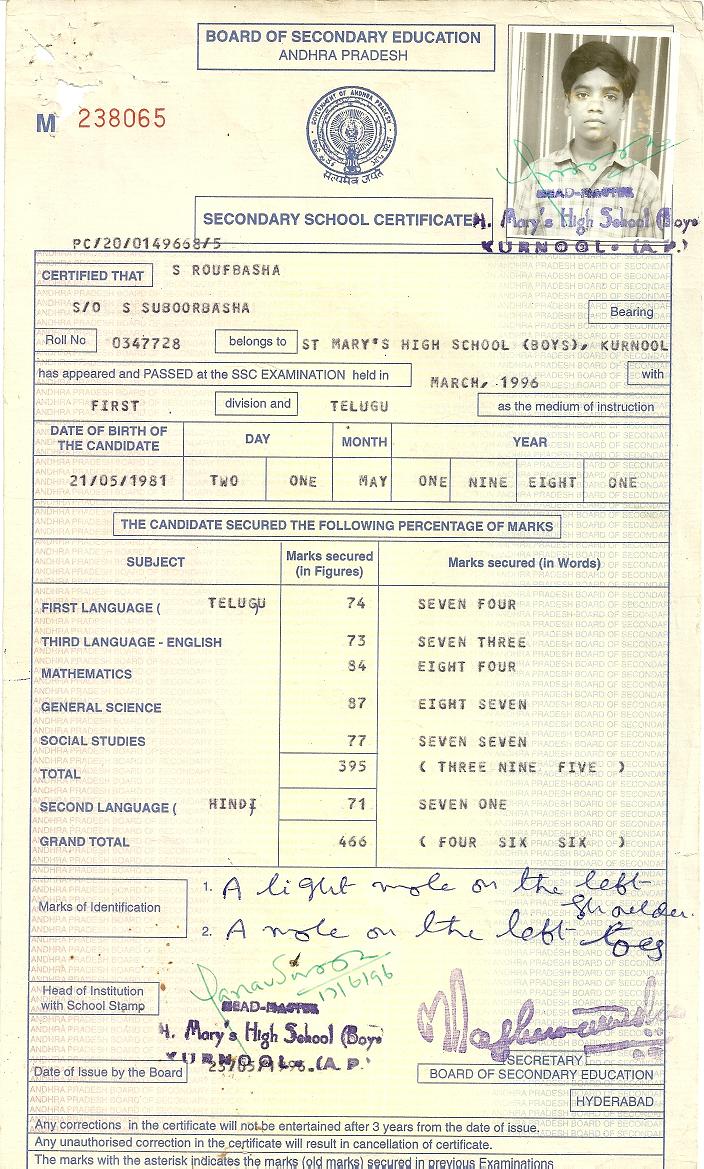 BOARD OF SECONDARY EDUCATION
ANDHRA PRADESH
M 238065
GOVERNMENT OF ANDHRA PRADESH
सत्यमेव जयते
HEAD-MASTER
SECONDARY SCHOOL CERTIFICATE
Mary's High School (Boys
KURNOOL. (A.P.)
PC/20/0149668/5
CERTIFIED THAT S ROUFBASHA
S/O S SUBOORBASHA
Bearing
Roll No 0347728 belongs to ST MARY'S HIGH SCHOOL (BOYS), KURNOOL
has appeared and PASSED at the SSC EXAMINATION held in MARCH, 1996 with
FIRST division and TELUGU as the medium of instruction
DATE OF BIRTH OF THE CANDIDATE DAY MONTH YEAR
21/05/1981 TWO ONE MAY ONE NINE EIGHT ONE
THE CANDIDATE SECURED THE FOLLOWING PERCENTAGE OF MARKS
SUBJECT Marks secured (in Figures) Marks secured (in Words)
FIRST LANGUAGE ( TELUGU ) 74 SEVEN FOUR
THIRD LANGUAGE - ENGLISH 73 SEVEN THREE
MATHEMATICS 84 EIGHT FOUR
GENERAL SCIENCE 87 EIGHT SEVEN
SOCIAL STUDIES 77 SEVEN SEVEN
TOTAL 395 ( THREE NINE FIVE )
SECOND LANGUAGE ( HINDI ) 71 SEVEN ONE
GRAND TOTAL 466 ( FOUR SIX SIX )
Marks of Identification
1. A light mole on the left shoulder.
2. A mole on the left toes
17/6/96
Head of Institution
with School Stamp
HEAD-MASTER
Mary's High School (Boys
KURNOOL. (A.P.)
Date of Issue by the Board 25/05/1996.
SECRETARY
BOARD OF SECONDARY EDUCATION
HYDERABAD
Any corrections in the certificate will not be entertained after 3 years from the date of issue.
Any unauthorised correction in the certificate will result in cancellation of certificate.
The marks with the asterisk indicates the marks (old marks) secured in previous Examinations